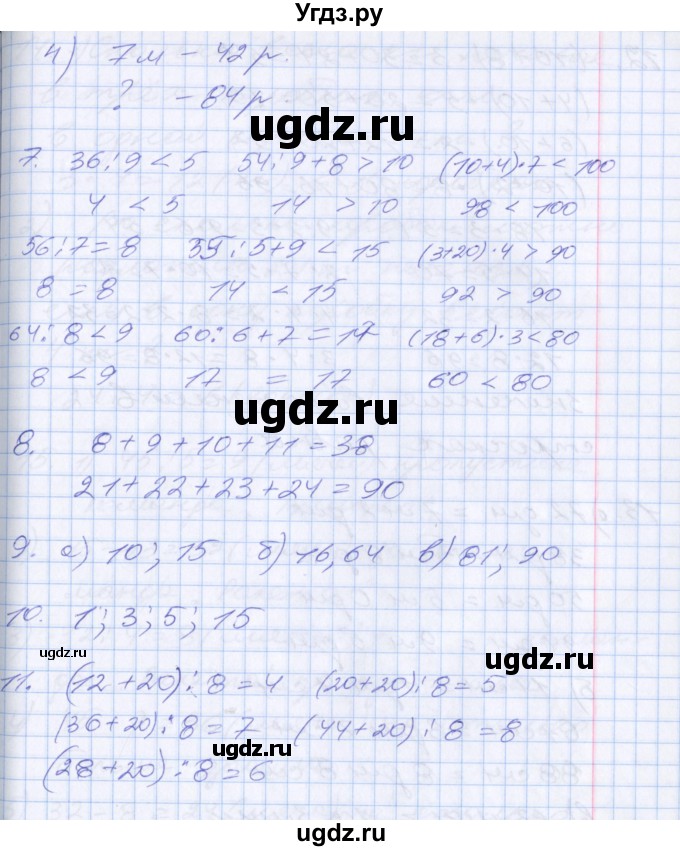 Угдз.ру
4) 7 м – 42 р.
? – 84 р.
ugdz.ru
7. 36 : 9 < 5 54 : 9 + 8 > 10 (10+4)·7 < 100
4 < 5 14 > 10 98 < 100
56 : 7 = 8 35 : 5+9 < 15 (3+20)·4 > 90
8 = 8 14 < 15 92 > 90
64 : 8 < 9 60 : 6 + 7 = 17 (18+6)·3 < 80
8 < 9 17 = 17 60 < 80
ugdz.ru
8. 8 + 9 + 10 + 11 = 38
21 + 22 + 23 + 24 = 90
9. а) 10 ; 15 б) 16, 64 в) 81 ; 90
10. 1 ; 3 ; 5 ; 15
ugdz.ru
ugdz.ru
11. (12 + 20) : 8 = 4 (20+20) : 8 = 5
(36+20) : 8 = 7 (44+20) : 8 = 8
ugdz.ru
(28 + 20) : 8 = 6
ugdz.ru